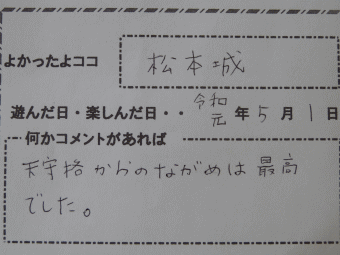 よかったよココ 松本城
遊んだ日・楽しんだ日・・令和元年5月1日
何かコメントがあれば
天守格からのながめは最高
でした。